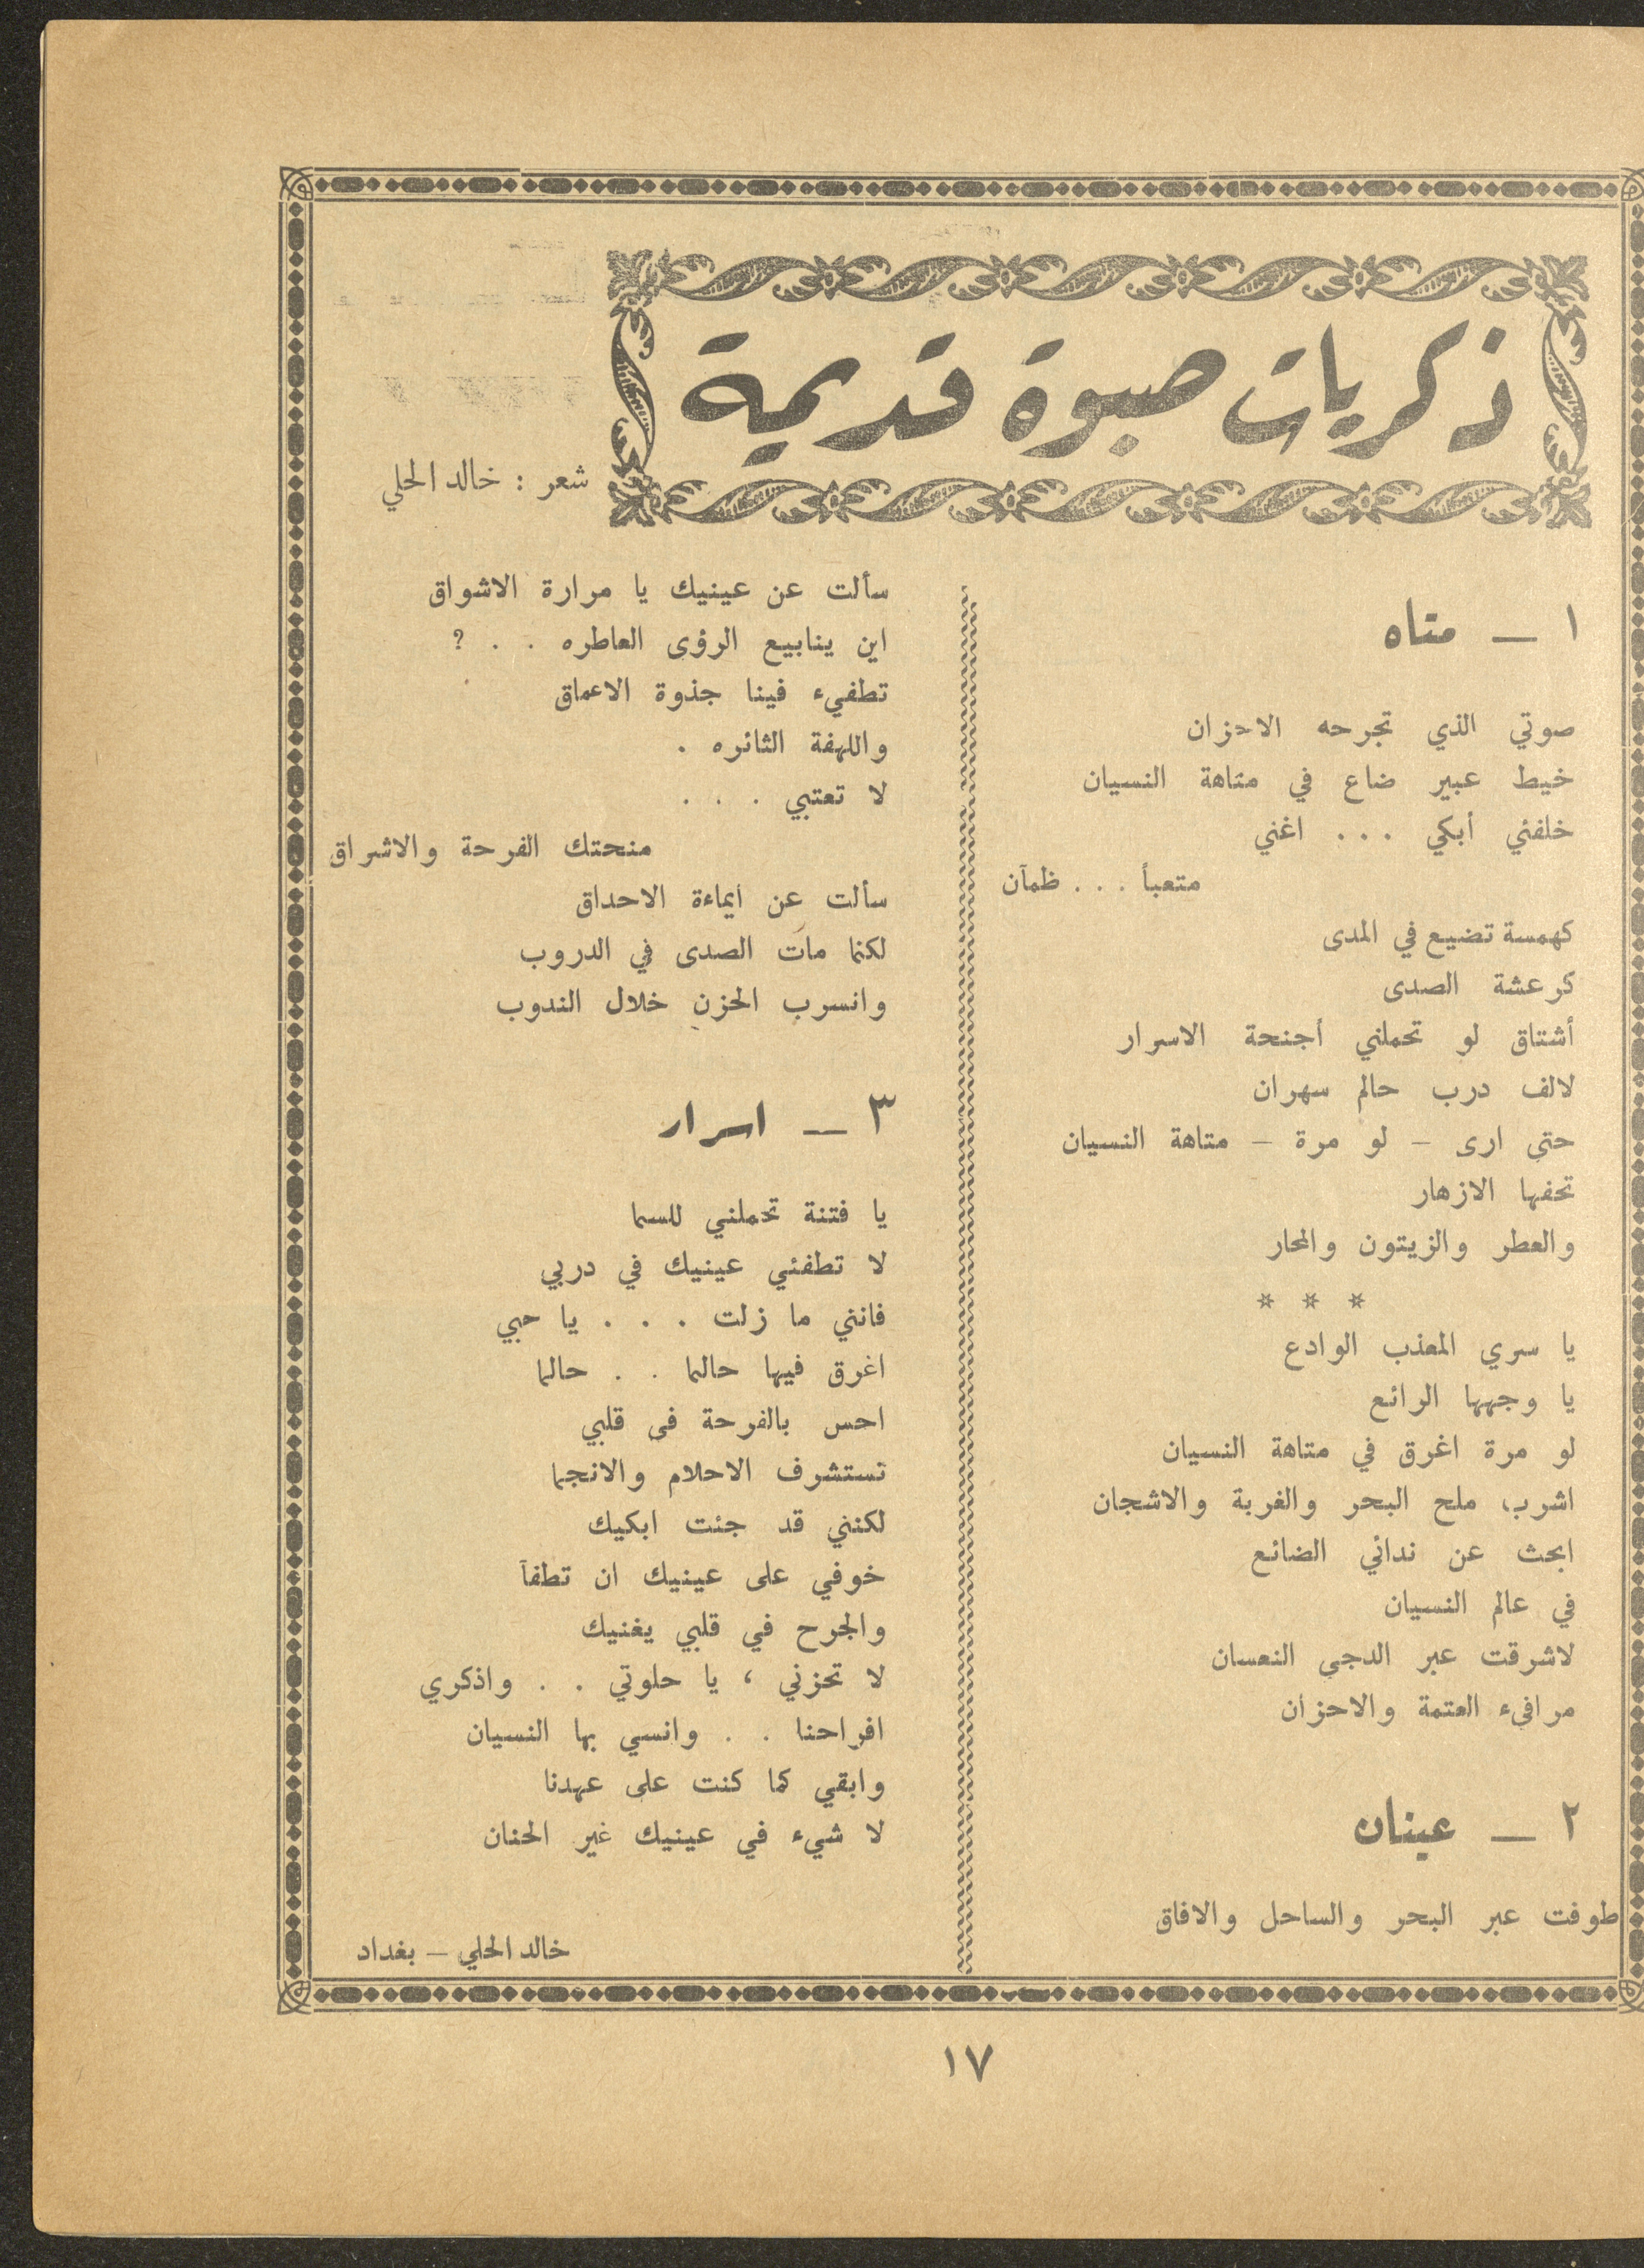 ذكريات صبوة قديمة
شعر : خالد الحلي
١ — متاه
صوتي الذي تجرحه الاحزان
خيط عبير ضاع في متاهة النسيان
خلفني أبكي . . . اغني
متعبأ . . . ظمآن
كهمسة تضيع في المدى
كرعشة الصدى
أشتاق لو تحملني أجنحة الاسرار
لالف درب حالم سهران
حتى ارى – لو مرة – متاهة النسيان
تحفها الازهار
والعطر والزيتون والمحار
* * *
يا سري المعذب الوادع
يا وجهها الرائع
لو مرة اغرق في متاهة النسيان
اشرب ملح البحر والغربة والاشجان
ابحث عن ندائي الضائع
في عالم النسيان
لاشرقت عبر الدجى النعسان
مرافيء العتمة والاحزان
٢ — عينان
طوفت عبر البحر والساحل والافاق
سألت عن عينيك يا مرارة الاشواق
اين ينابيع الرؤى العاطره . . ?
تطفيء فينا جذوة الاعماق
واللهفة الثائره .
لا تعتبي . . .
منحتك الفرحة والاشراق
سألت عن ايماءة الاحداق
لكنما مات الصدى في الدروب
وانسرب الحزن خلال الندوب
٣ — اسرار
يا فتنة تحملني للسما
لا تطفئي عينيك في دربي
فانني ما زلت . . . يا حبي
اغرق فيها حالما . . حالما
احس بالفرحة فى قلبي
تستشرف الاحلام والانجما
لكنني قد جئت ابكيك
خوفي على عينيك ان تطفآ
والجرح في قلبي يغنيك
لا تحزني ، يا حلوتي . . واذكري
افراحنا . . وانسي بها النسيان
وابقي كما كنت على عهدنا
لا شيء في عينيك غير الحنان
خالد الحلي – بغداد
١٧